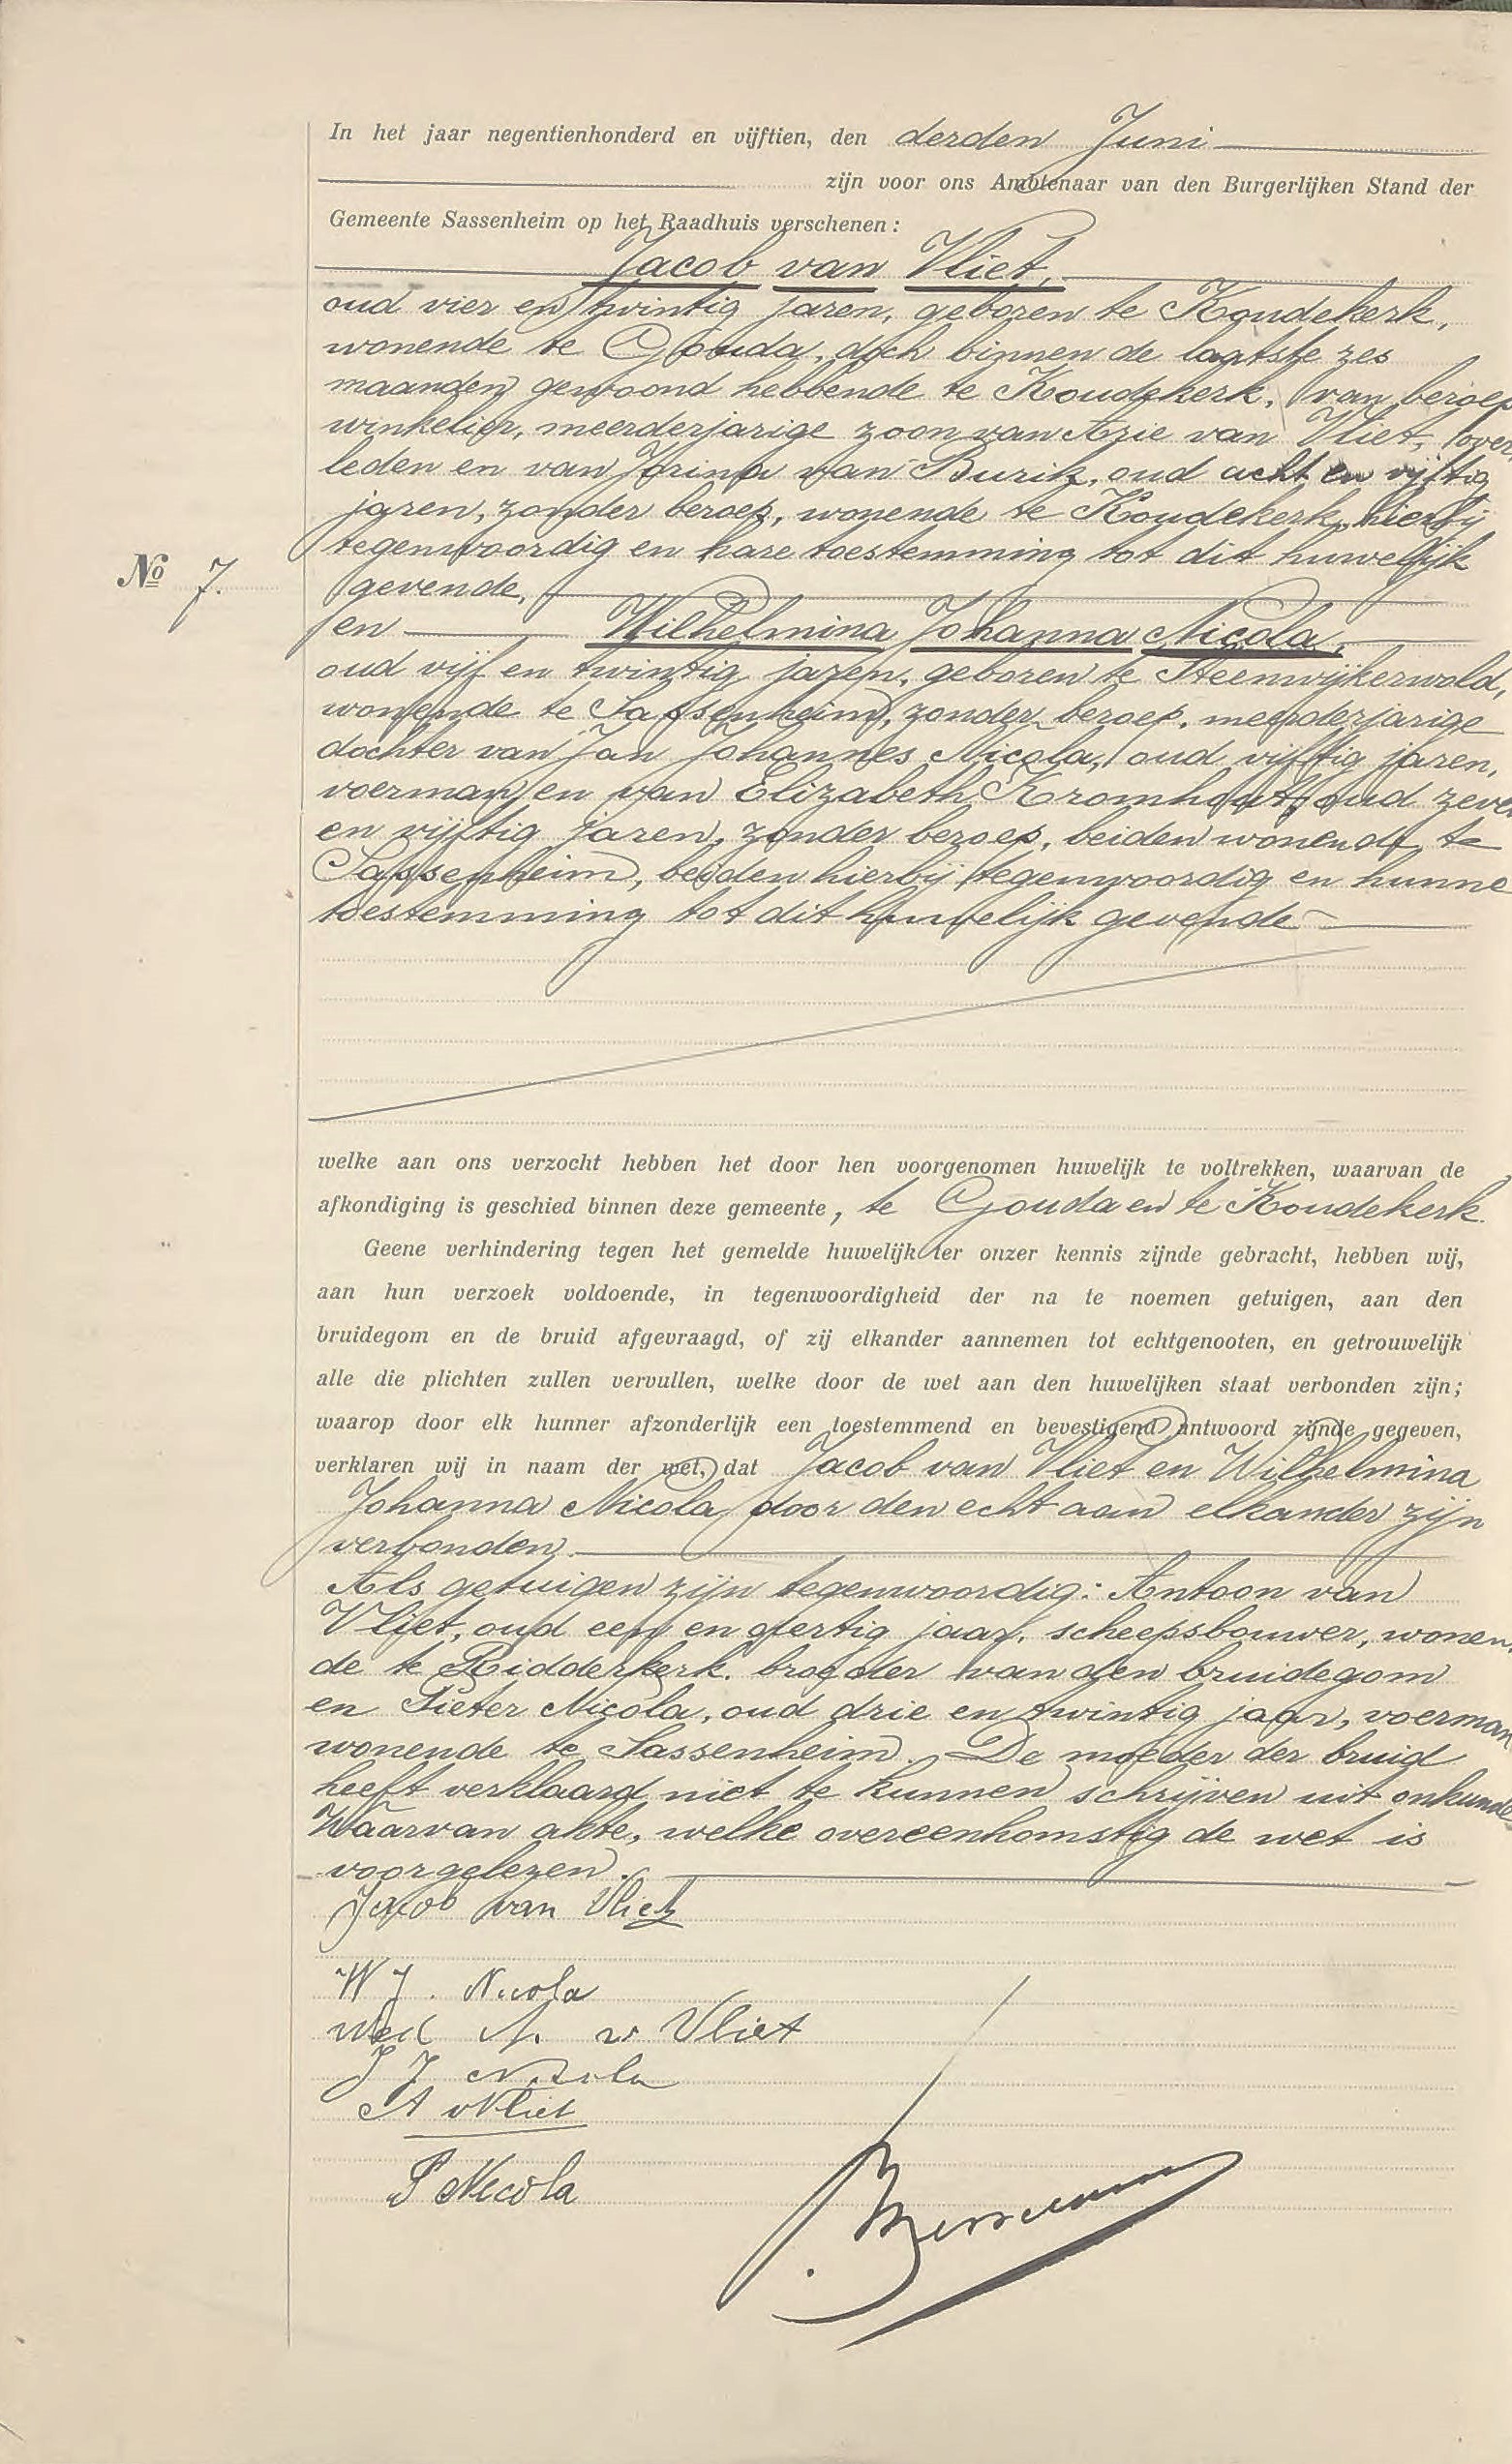 In het jaar negentienhonderd en vijftien, den derden Juni
zijn voor ons Ambtenaar van den Burgerlijken Stand der
Gemeente Sassenheim op het Raadhuis verschenen:
Jacob van Vliet,
oud vier en twintig jaren, geboren te Koudekerk,
wonende te Gouda, doch binnen de laatste zes
maanden gewoond hebbende te Koudekerk, van beroep
winkelier, meerderjarige zoon van Arie van Vliet, over-
leden en van Jorina van Burik, oud acht en vijftig
jaren, zonder beroep, wonende te Koudekerk, hierbij
tegenwoordig en hare toestemming tot dit huwelijk
No 7. gevende,
en Wilhelmina Johanna Nicola,
oud vijf en twintig jaren, geboren te Steenwijkerwold,
wonende te Sassenheim, zonder beroep, meerderjarige
dochter van Jan Johannes Nicola, oud vijftig jaren,
voerman en van Elizabeth Kromhout, oud zeven
en vijftig jaren, zonder beroep, beiden wonende te
Sassenheim, beiden hierbij tegenwoordig en hunne
toestemming tot dit huwelijk gevende
welke aan ons verzocht hebben het door hen voorgenomen huwelijk te voltrekken, waarvan de
afkondiging is geschied binnen deze gemeente, te Gouda en te Koudekerk.
Geene verhindering tegen het gemelde huwelijk ter onzer kennis zijnde gebracht, hebben wij,
aan hun verzoek voldoende, in tegenwoordigheid der na te noemen getuigen, aan den
bruidegom en de bruid afgevraagd, of zij elkander aannemen tot echtgenooten, en getrouwelijk
alle die plichten zullen vervullen, welke door de wet aan den huwelijken staat verbonden zijn;
waarop door elk hunner afzonderlijk een toestemmend en bevestigend antwoord zijnde gegeven,
verklaren wij in naam der wet, dat Jacob van Vliet en Wilhelmina
Johanna Nicola door den echt aan elkander zijn
verbonden.
Als getuigen zijn tegenwoordig: Antoon van
Vliet, oud een en dertig jaar, scheepsbouwer, wonen-
de te Ridderkerk, broeder van den bruidegom
en Pieter Nicola, oud drie en twintig jaar, voerman
wonende te Sassenheim. De moeder der bruid
heeft verklaard niet te kunnen schrijven uit onkunde
Waarvan akte, welke overeenkomstig de wet is
voorgelezen.
Jacob van Vliet
W J. Nicola
Wed A. v Vliet
J J Nicola
A v Vliet
P Nicola